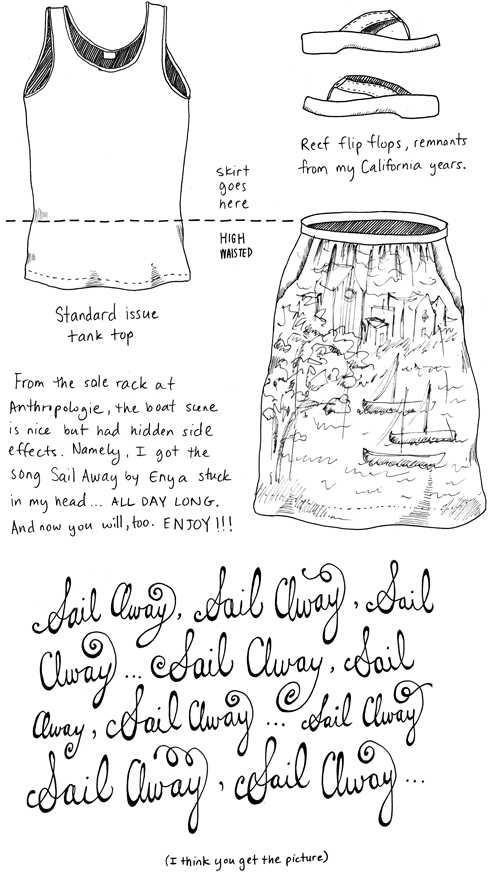 Reef flip flops, remnants
from my California years.
skirt
goes
here
HIGH
WAISTED
Standard issue
tank top
From the sale rack at
Anthropologie, the boat scene
is nice but had hidden side
effects. Namely, I got the
song Sail Away by Enya stuck
in my head... ALL DAY LONG.
And now you will, too. ENJOY!!!
Sail Away, Sail Away, Sail
Away... Sail Away, Sail
Away, Sail Away... Sail Away
Sail Away, Sail Away...
(I think you get the picture)